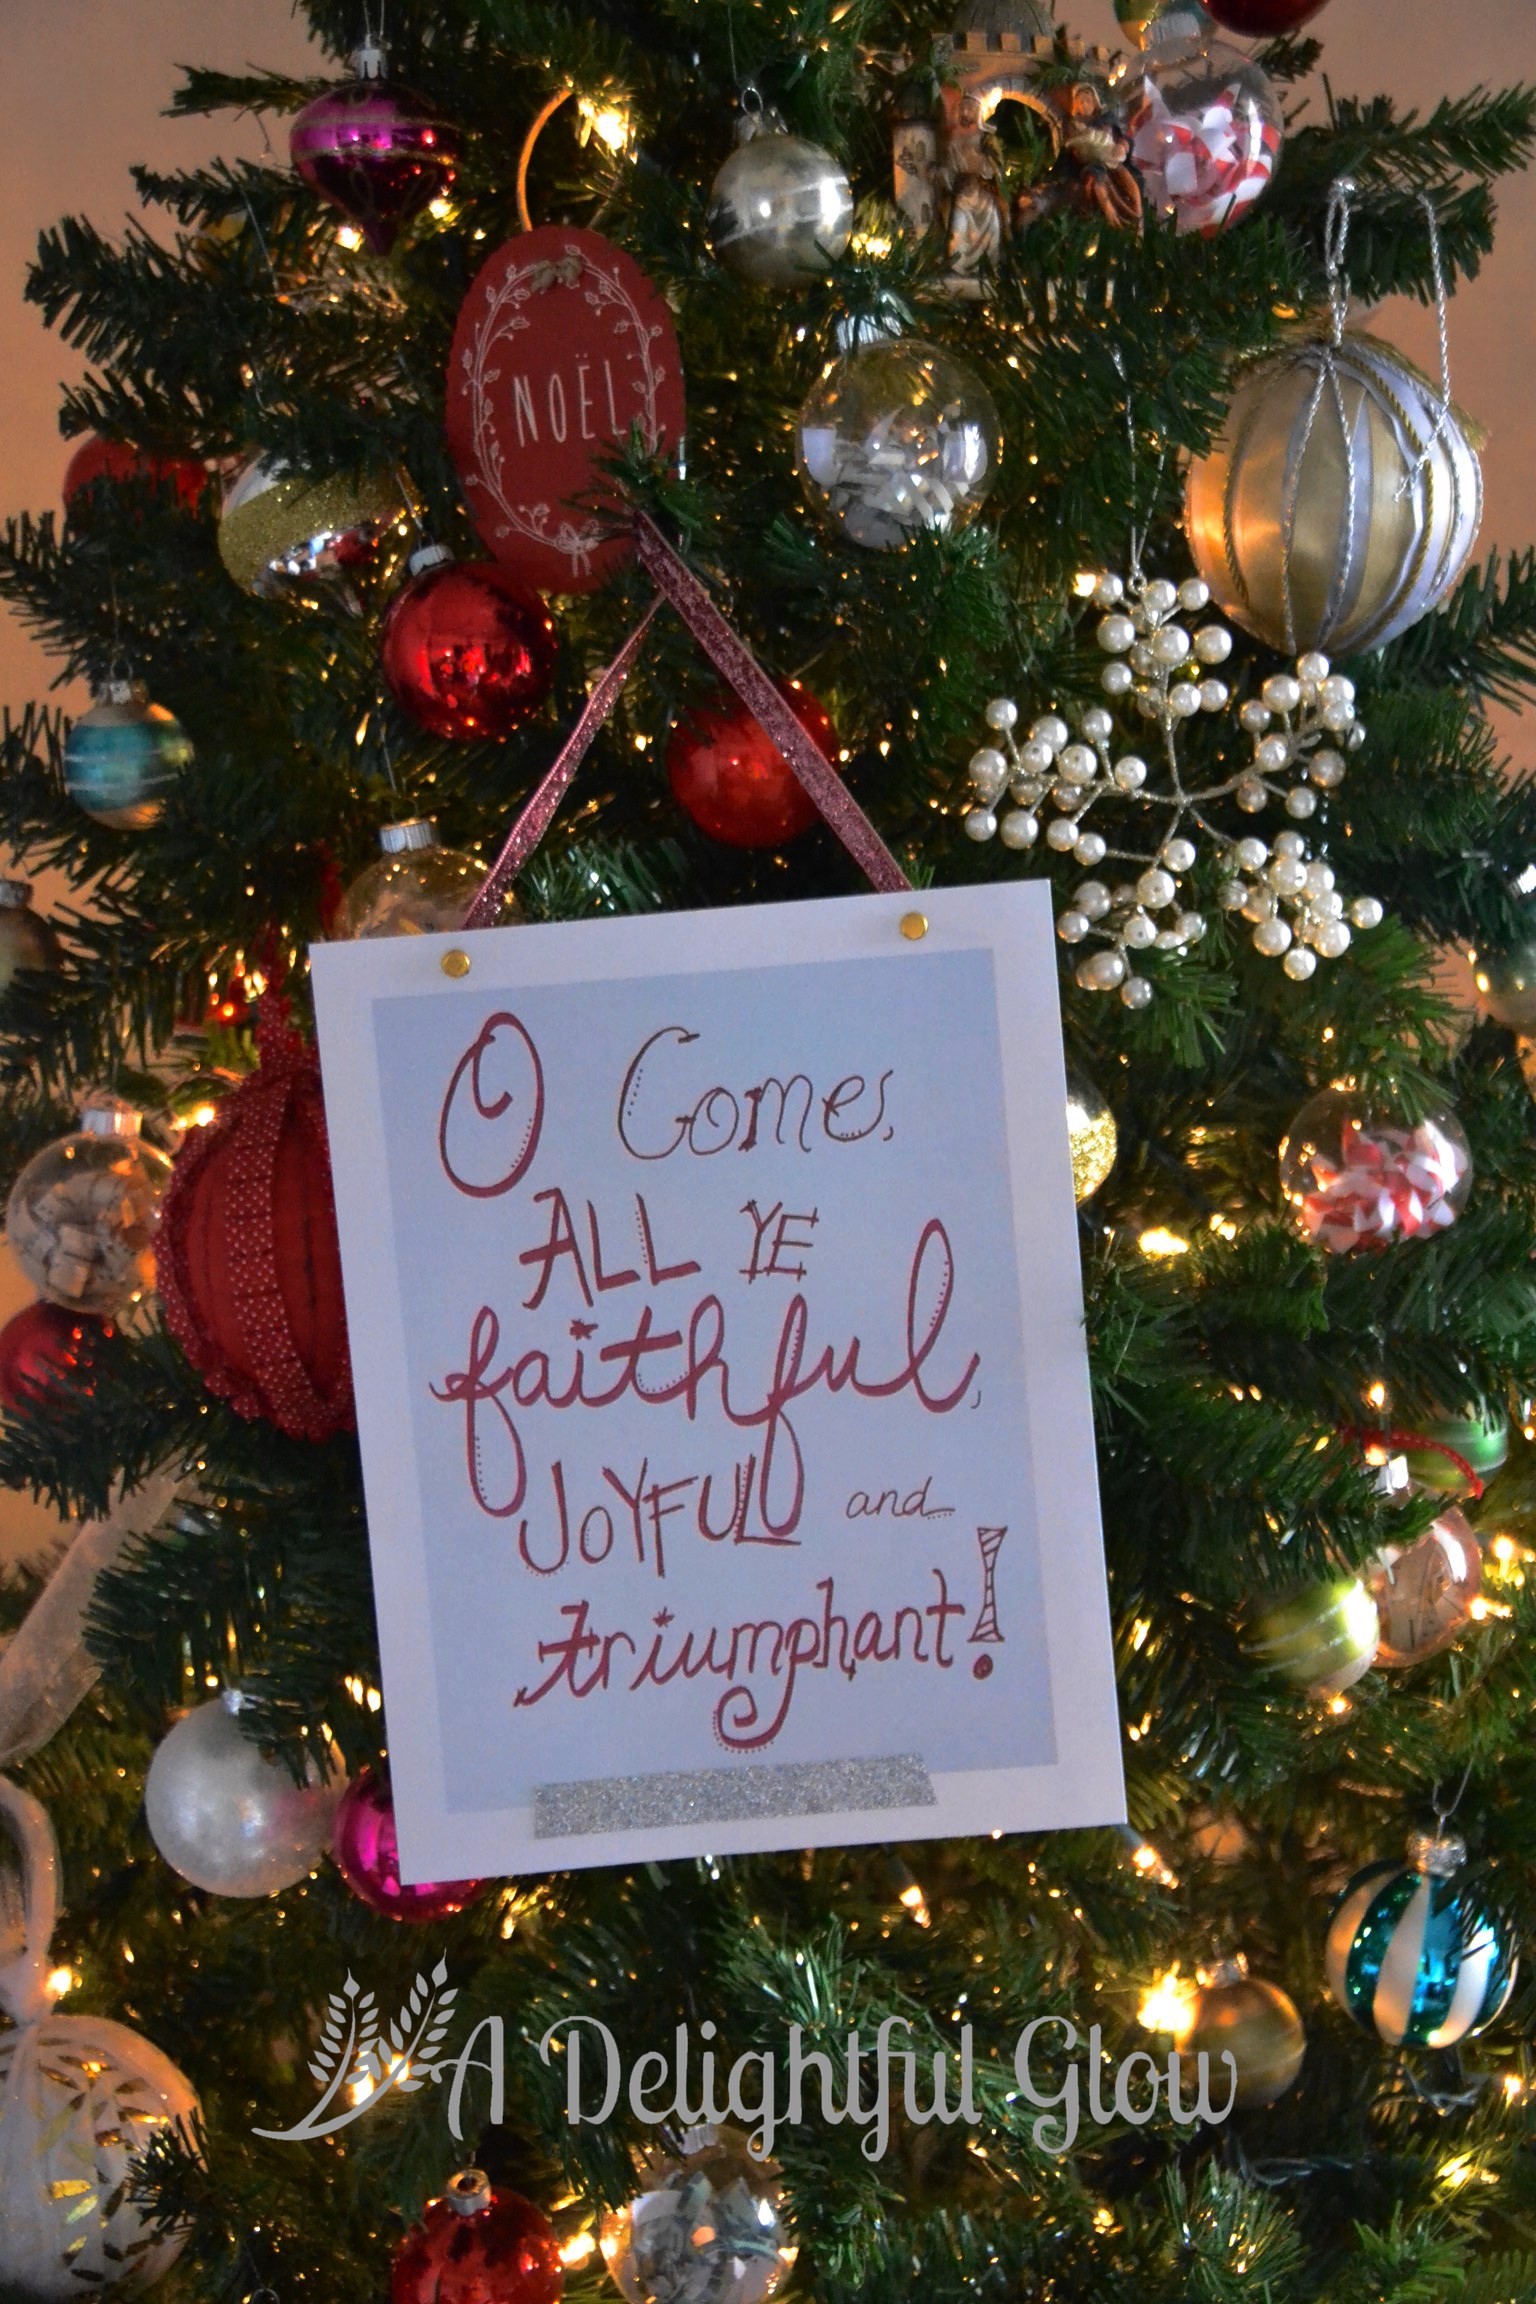 NOËL
O Come,
ALL YE
faithful,
JOYFUL and
triumphant!
A Delightful Glow